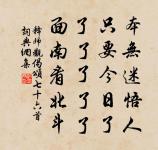 本無迷悟人
只要今日了
了了了了了
面南看北斗
釋師觀偈頌七十六首
詞典網集